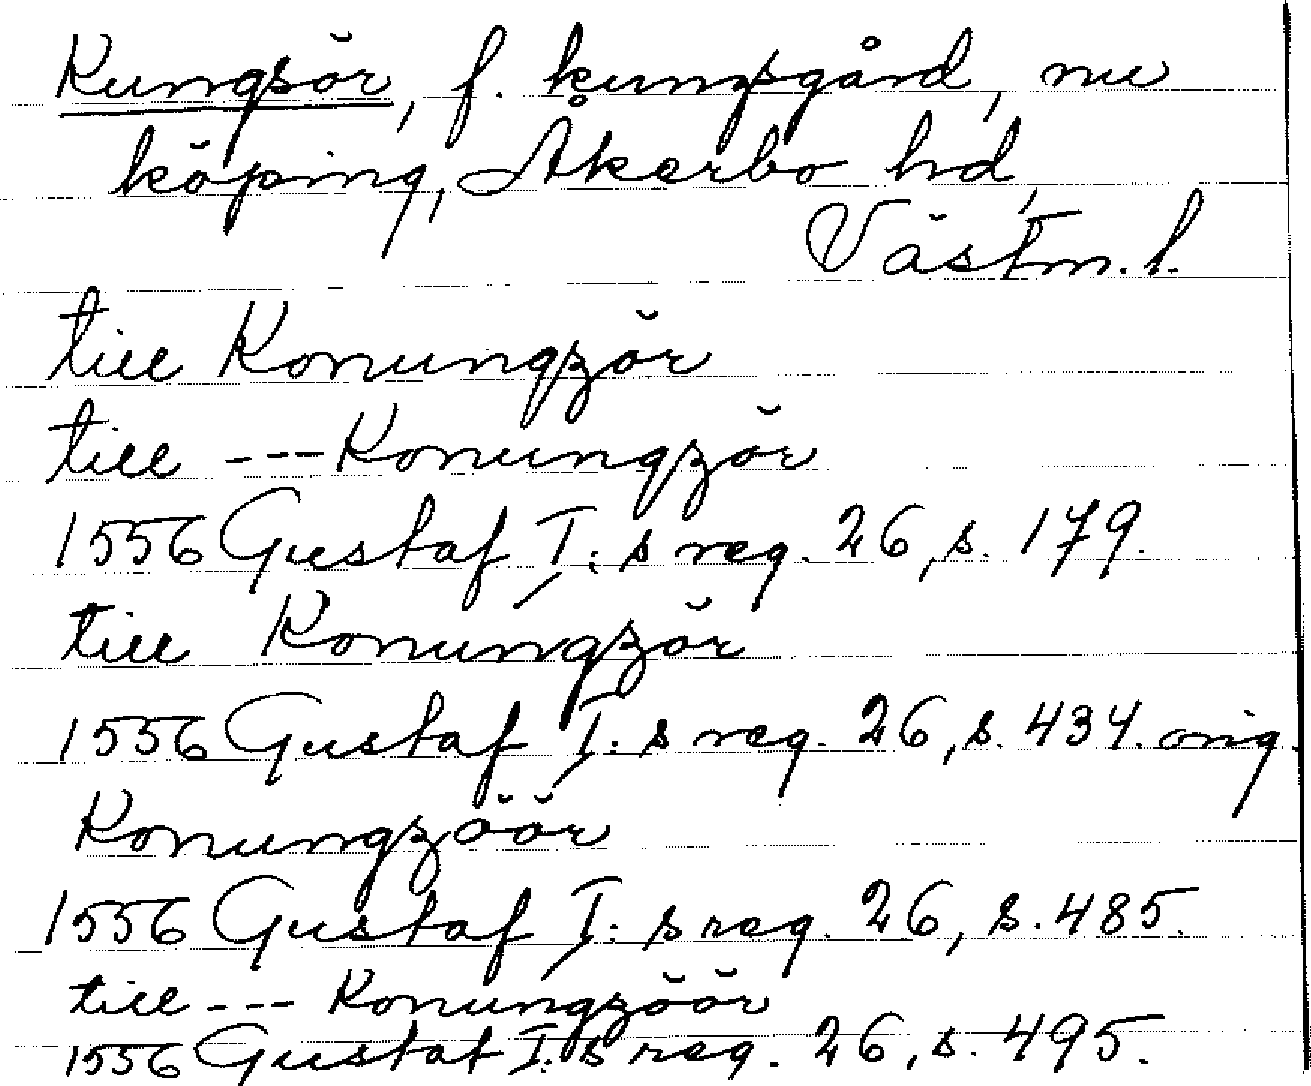 Kungsör, f. kungsgård, nu
köping, Åkerbo hd,
Västm. l.
till Konungzör
till --- Konungzör
1556 Gustaf I:s reg. 26, s. 179.
till Konungzör
1556 Gustaf I:s reg. 26, s. 434. orig.
Konungzöör
1556 Gustaf I:s reg. 26, s. 485.
till --- Konungzöör
1556 Gustaf I:s reg. 26, s. 495.